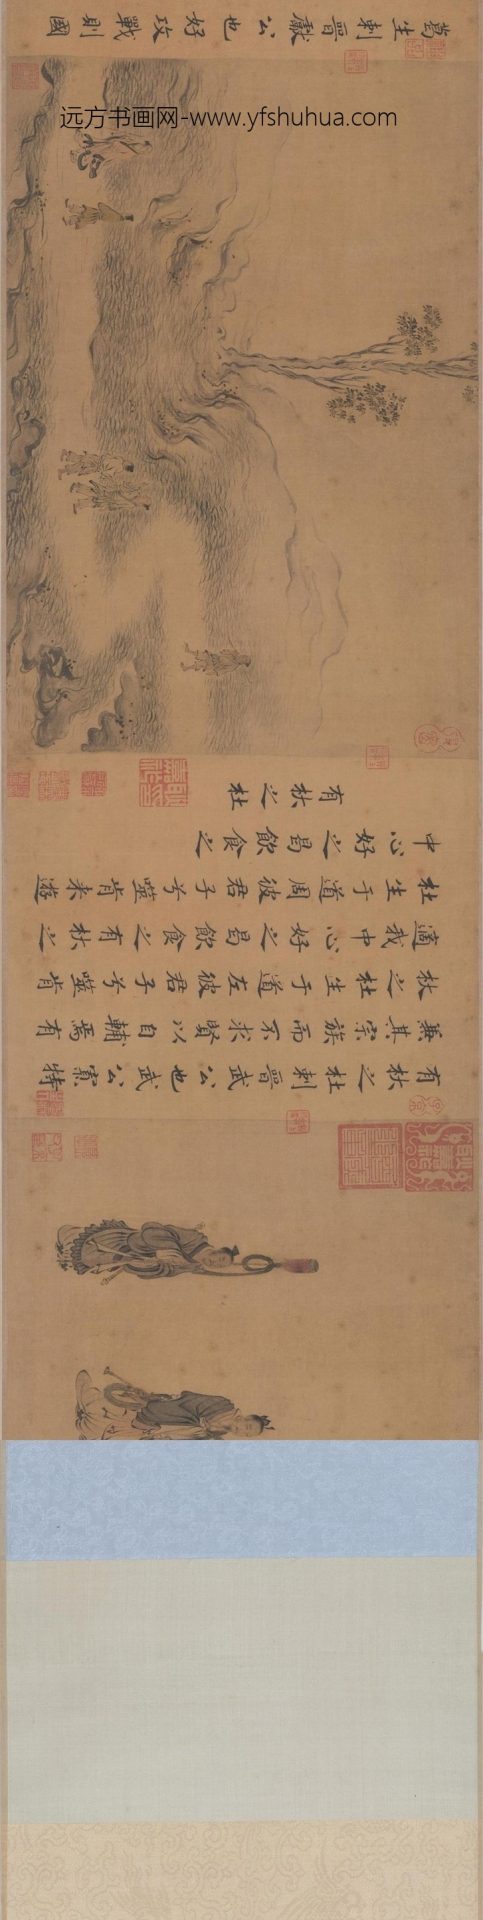 远方书画网-www.yfshuhua.com
有杕之杜刺晉武公也武公寡特
兼其宗族而不求賢以自輔焉有
杕之杜生于道左彼君子兮噬肯
適我中心好之曷飲食之有杕之
杜生于道周彼君子兮噬肯来遊
中心好之曷飲食之
有杕之杜
葛生刺晉獻公也好攻戰則國